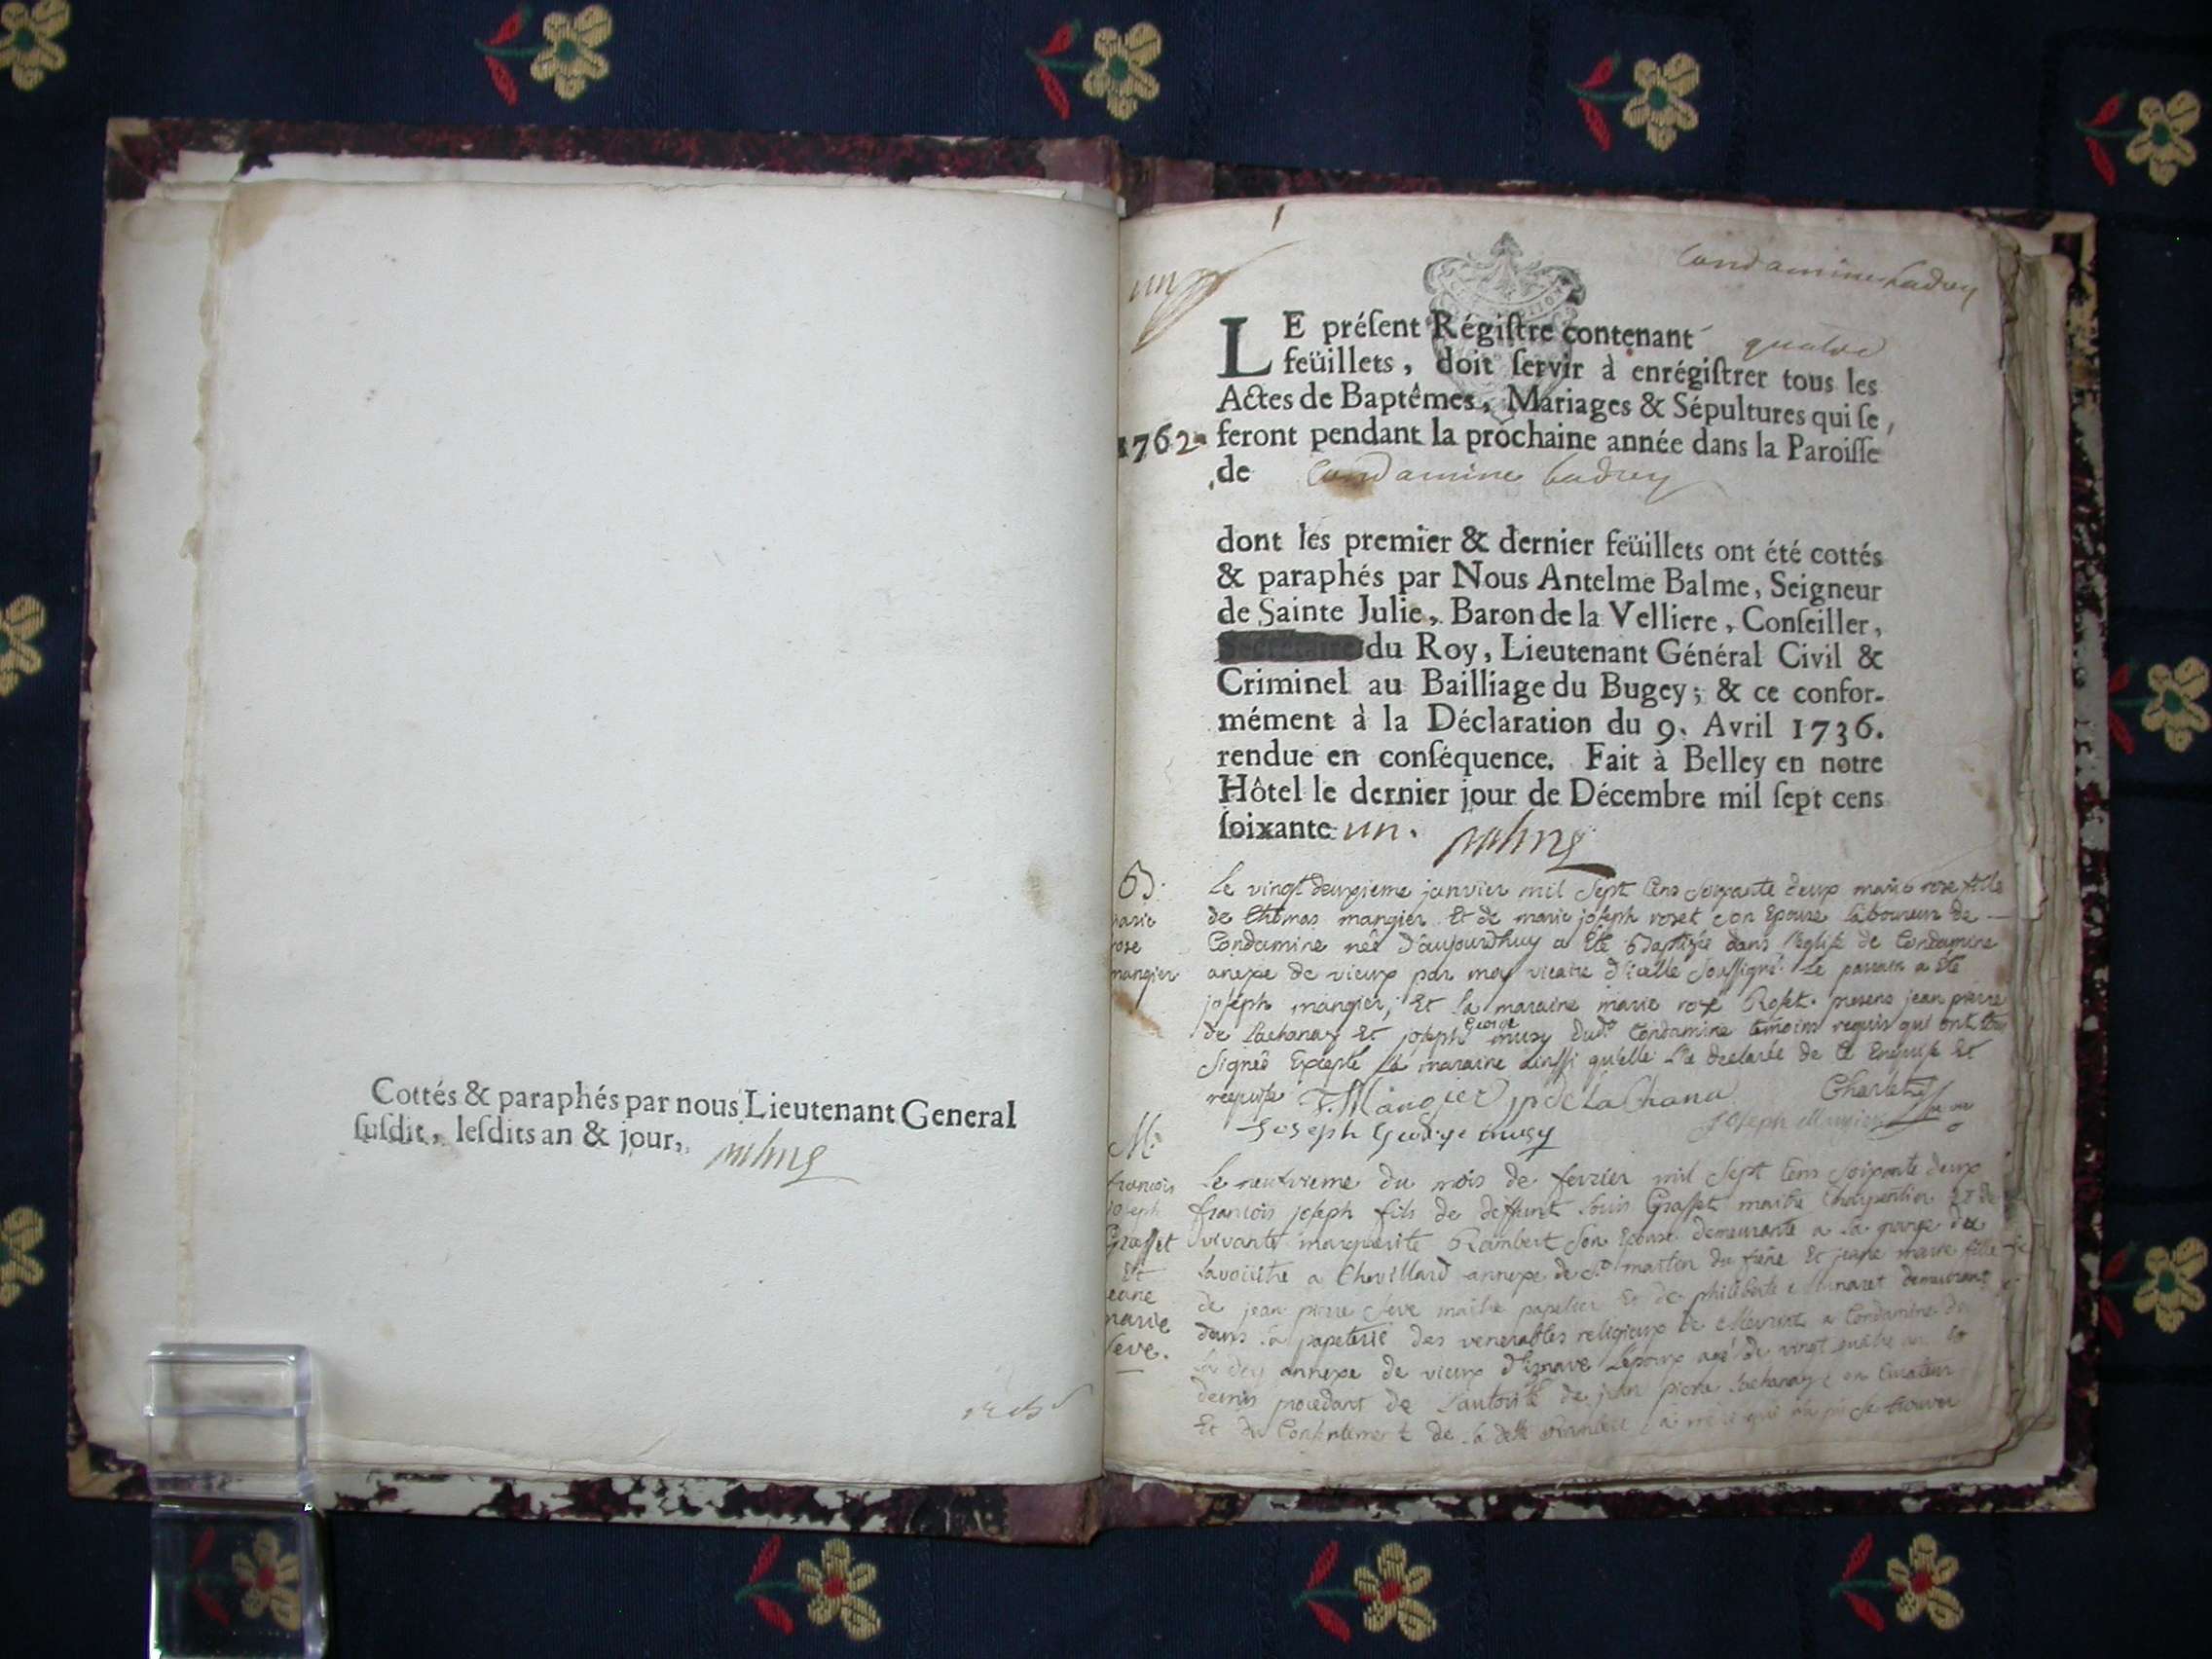 Cottés & paraphés par nous Lieutenant General
ſuſdit, leſdits an & jour,
1
un
Condamine Ladoy
LE préſent Régiſtre contenant quatre
feüillets, doit ſervir à enrégiſtrer tous les
Actes de Baptêmes, Mariages & Sépultures qui ſe
1762. feront pendant la prochaine année dans la Paroiſſe
de Condamine Ladoy
dont les premier & dernier feüillets ont été cottés
& paraphés par Nous Antelme Balme, Seigneur
de Sainte Julie, Baron de la Velliere, Conſeiller,
du Roy, Lieutenant Général Civil &
Criminel au Bailliage du Bugey; & ce confor-
mément à la Déclaration du 9. Avril 1736.
rendue en conſéquence. Fait à Belley en notre
Hôtel le dernier jour de Décembre mil ſept cens
ſoixante un.
B.
marie
rose
mangier
Le vingt deuxieme janvier mil Sept Cens Soixante deux marie rose fille
de Thomas mangier Et de marie joseph roset son Epouse laboureur de
Condamine née d'aujourdhuy a Eté Baptisée dans l'eglise de Condamine
anexe de vieux par moy vicaire d'icelle Soussigné. Le parrain a été
joseph mangier, Et la maraine marie rose Roset. presens jean pierre
de Lachanay Et joseph george musy dud. Condamine temoins requis qui ont tous
Signés Excepté la maraine ainssi qu'elle l'a declarée de ce Enquise Et
requise T. Mangier jp de la Chana Charlet
Joseph George musy joseph Mangier
M.
francois
joseph
Grasset
Et
jeane
marie
Seve.
Le neufvieme du mois de fevrier mil Sept Cens Soixante deux
francois joseph fils de deffunt Louis Grasset maitre Charpentier Et de
vivante marguerite Rambert Son Epouse demeurante a la grange de
a Chevillard annexe de St martin du frêne Et jeane marie fille
de jean pierre Seve maitre papetier Et de philiberte demeurant
dans la papeterie des venerables religieux de Meyriat a Condamine de
la doy annexe de vieux d'Isnave L'epoux agé de vingt quatre ans
procedant de L'autorité de jean pierre Lachanay son Curateur
Et du Consentement de la dette Rambert Sa mère qui n'a pû Se trouver